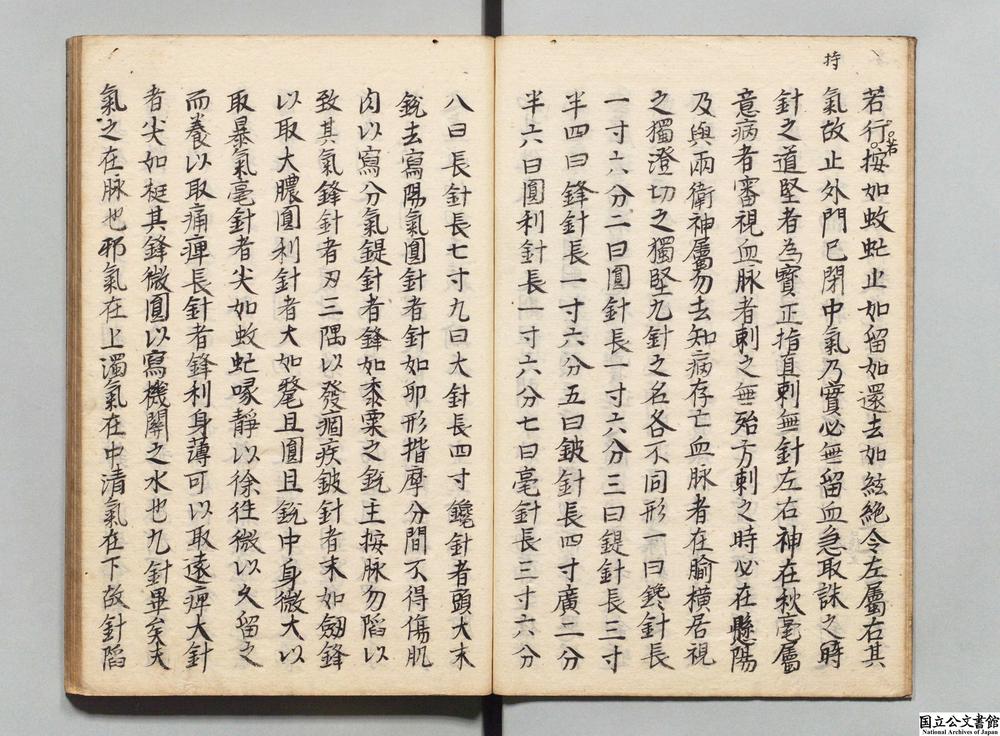 持
若行。若按如蚊虻止如留如還去如絃絶令左屬右其
氣故止外門已閉中氣乃實必無留血急取誅之
針之道堅者為寶正指直刺無針左右神在秋毫屬
意病者審視血脉者刺之無殆方刺之時必在懸陽
及與兩衛神屬勿去知病存亡血脉者在腧横居視
之獨澄切之獨堅九針之名各不同形一曰鑱針長
一寸六分二曰圓針長一寸六分三曰鍉針長三寸
半四曰鋒針長一寸六分五曰鈹針長四寸廣二分
半六曰圓利針長一寸六分七曰毫針長三寸六分
八曰長針長七寸九曰大針長四寸鑱針者頭大末
鋭去寫陽氣圓針者針如卵形揩摩分間不得傷肌
肉以寫分氣鍉針者鋒如黍粟之鋭主按脉勿陷以
致其氣鋒針者刃三隅以發痼疾鈹針者末如劔鋒
以取大膿圓利針者大如氂且圓且鋭中身微大以
取暴氣毫針者尖如蚊虻喙靜以徐往微以久留之
而養以取痛痺長針者鋒利身薄可以取遠痺大針
者尖如梃其鋒微圓以寫機關之水也九針畢矣夫
氣之在脉也邪氣在上濁氣在中清氣在下故針陷
国立公文書館
National Archives of Japan